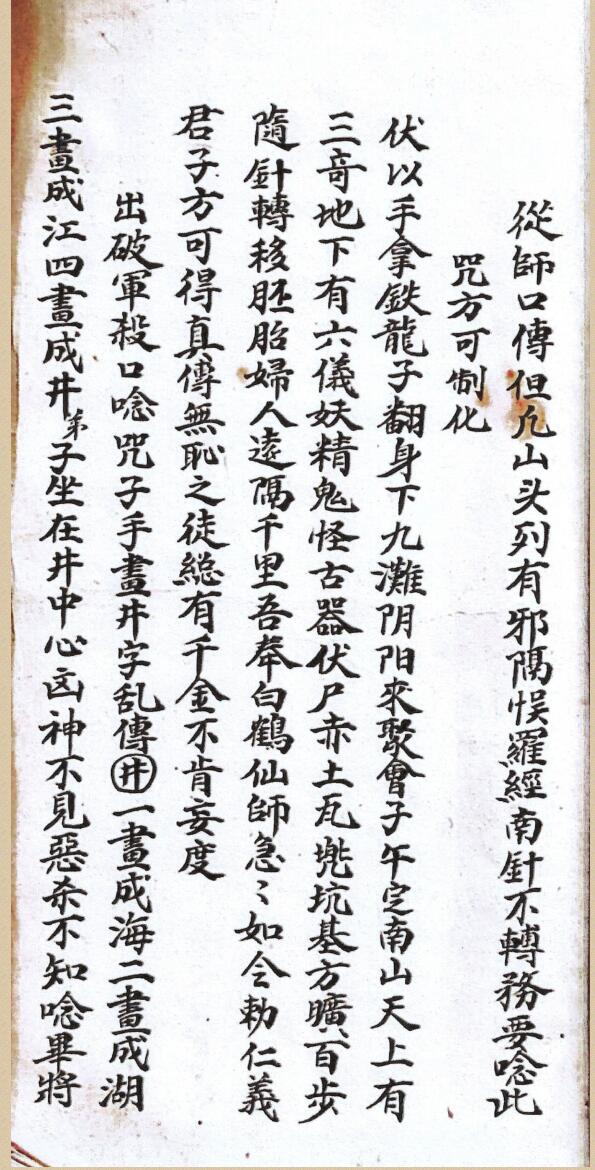 從師口傳但凢山头列有邪隅悮羅經南針不轉務要唸此
咒方可制化
伏以手拿鉄龍子翻身下九灘阴阳來聚會子午定南山天上有
三竒地下有六儀妖精鬼怪古器伏尸赤土瓦兠坑基方曠、百步
隨針轉移胚胎婦人遠隅千里吾奉白鶴仙師急〻如令勅仁義
君子方可得真傳無恥之徒総有千金不肯妄度
出破軍殺口唸咒子手畫井字乱傳井一畫成海二畫成湖
三畫成江四畫成井弟子坐在井中心凶神不見惡杀不知唸畢將